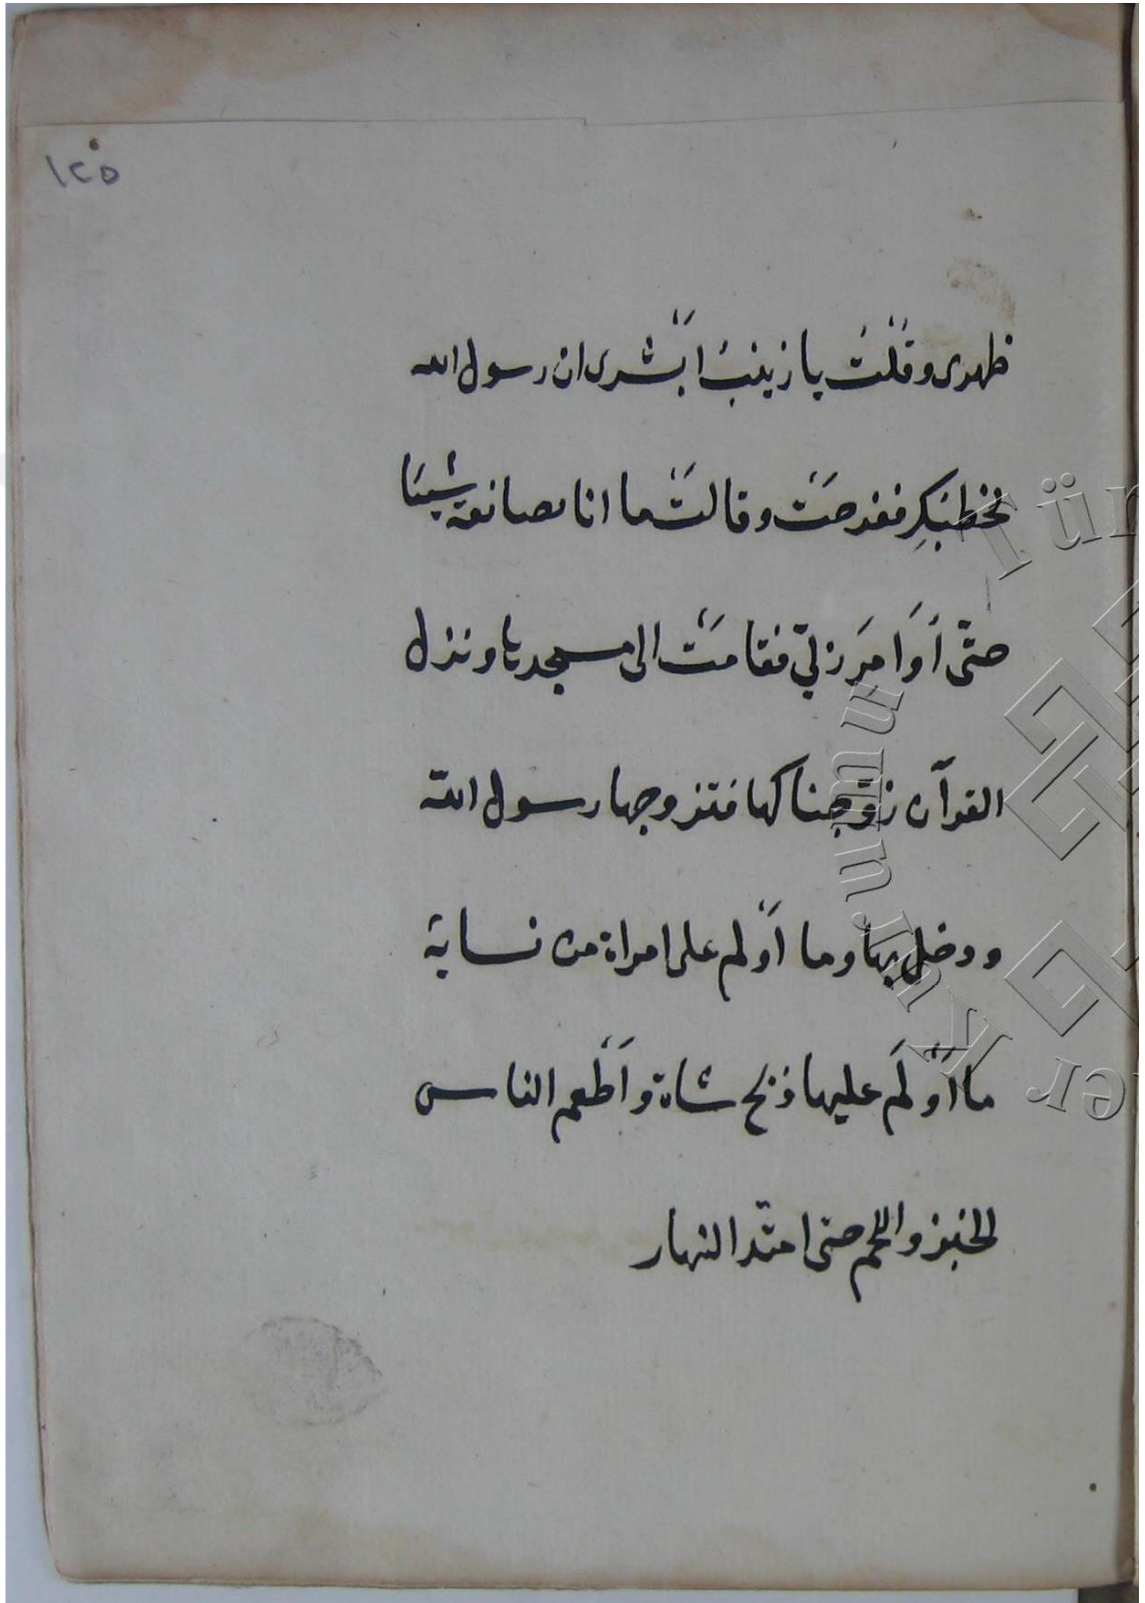 ١٢٥
ظهرى وقُلْتُ يا زينبُ اَبْشرى ان رسول الله
يخطبُكِ ففرحَتْ وقالتْ ما انا بصانعة شيئا
حتّى اُوَامِرَ ربّي فقامَتْ الى مسجدها ونزل
القرآن زوّجناكها فتزوجها رسول الله
ودخل بها وما اَوْلم على امراة من نساىٔه
ما اَوْلَم عليها ذبح شاة واَطْعم الناس
الخبز واللحم حتى امتدّ النهار